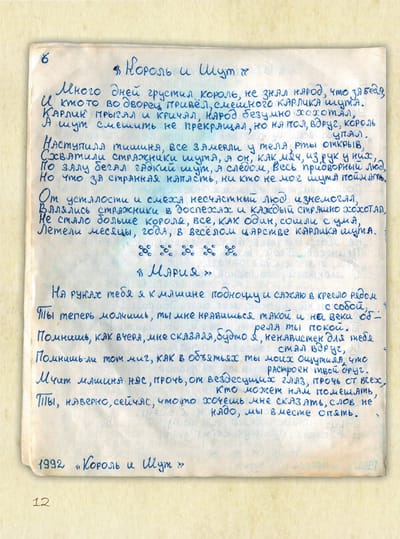 6
« Король и Шут »
Много дней грустил король, не знал народ, что за беда,
И кто то во дворец привёл, смешного карлика шута.
Карлик прыгал и кричал, народ безумно хохотал,
А шут смешить не прекращал, но на пол, вдруг, король
упал.
Наступила тишина, все замерли у тела, рты открыв,
Схватили стражники шута, а он, как мяч, из рук у них,
По залу бегал гадкий шут, а следом, весь придворный люд,
Но что за странная напасть, ни кто не мог шута поймать,
От усталости и смеха несчастный люд изнемогал,
Валялись стражники в доспехах и каждый страшно хохотал,
Не стало больше короля, все, как один, сошли с ума,
Летели месяцы, года, в весёлом царстве карлика шута.
« Мария »
На руках тебя я к машине подношу и сажаю в кресло рядом
с собой,
Ты теперь молчишь, ты мне нравишься такой и на веки об-
рела ты покой.
Помнишь, как вчера, мне сказала, будто я, ненавистен для тебя
стал вдруг,
Помнишь ли тот миг, как в объятьях ты моих ощутила, что
растроен твой друг.
Мчит машина нас, прочь, от вездесущих глаз, прочь от всех,
кто может нам помешать,
Ты, наверно, сейчас, что то хочешь мне сказать, слов не
надо, мы вместе опять.
1992 « Король и Шут »
12